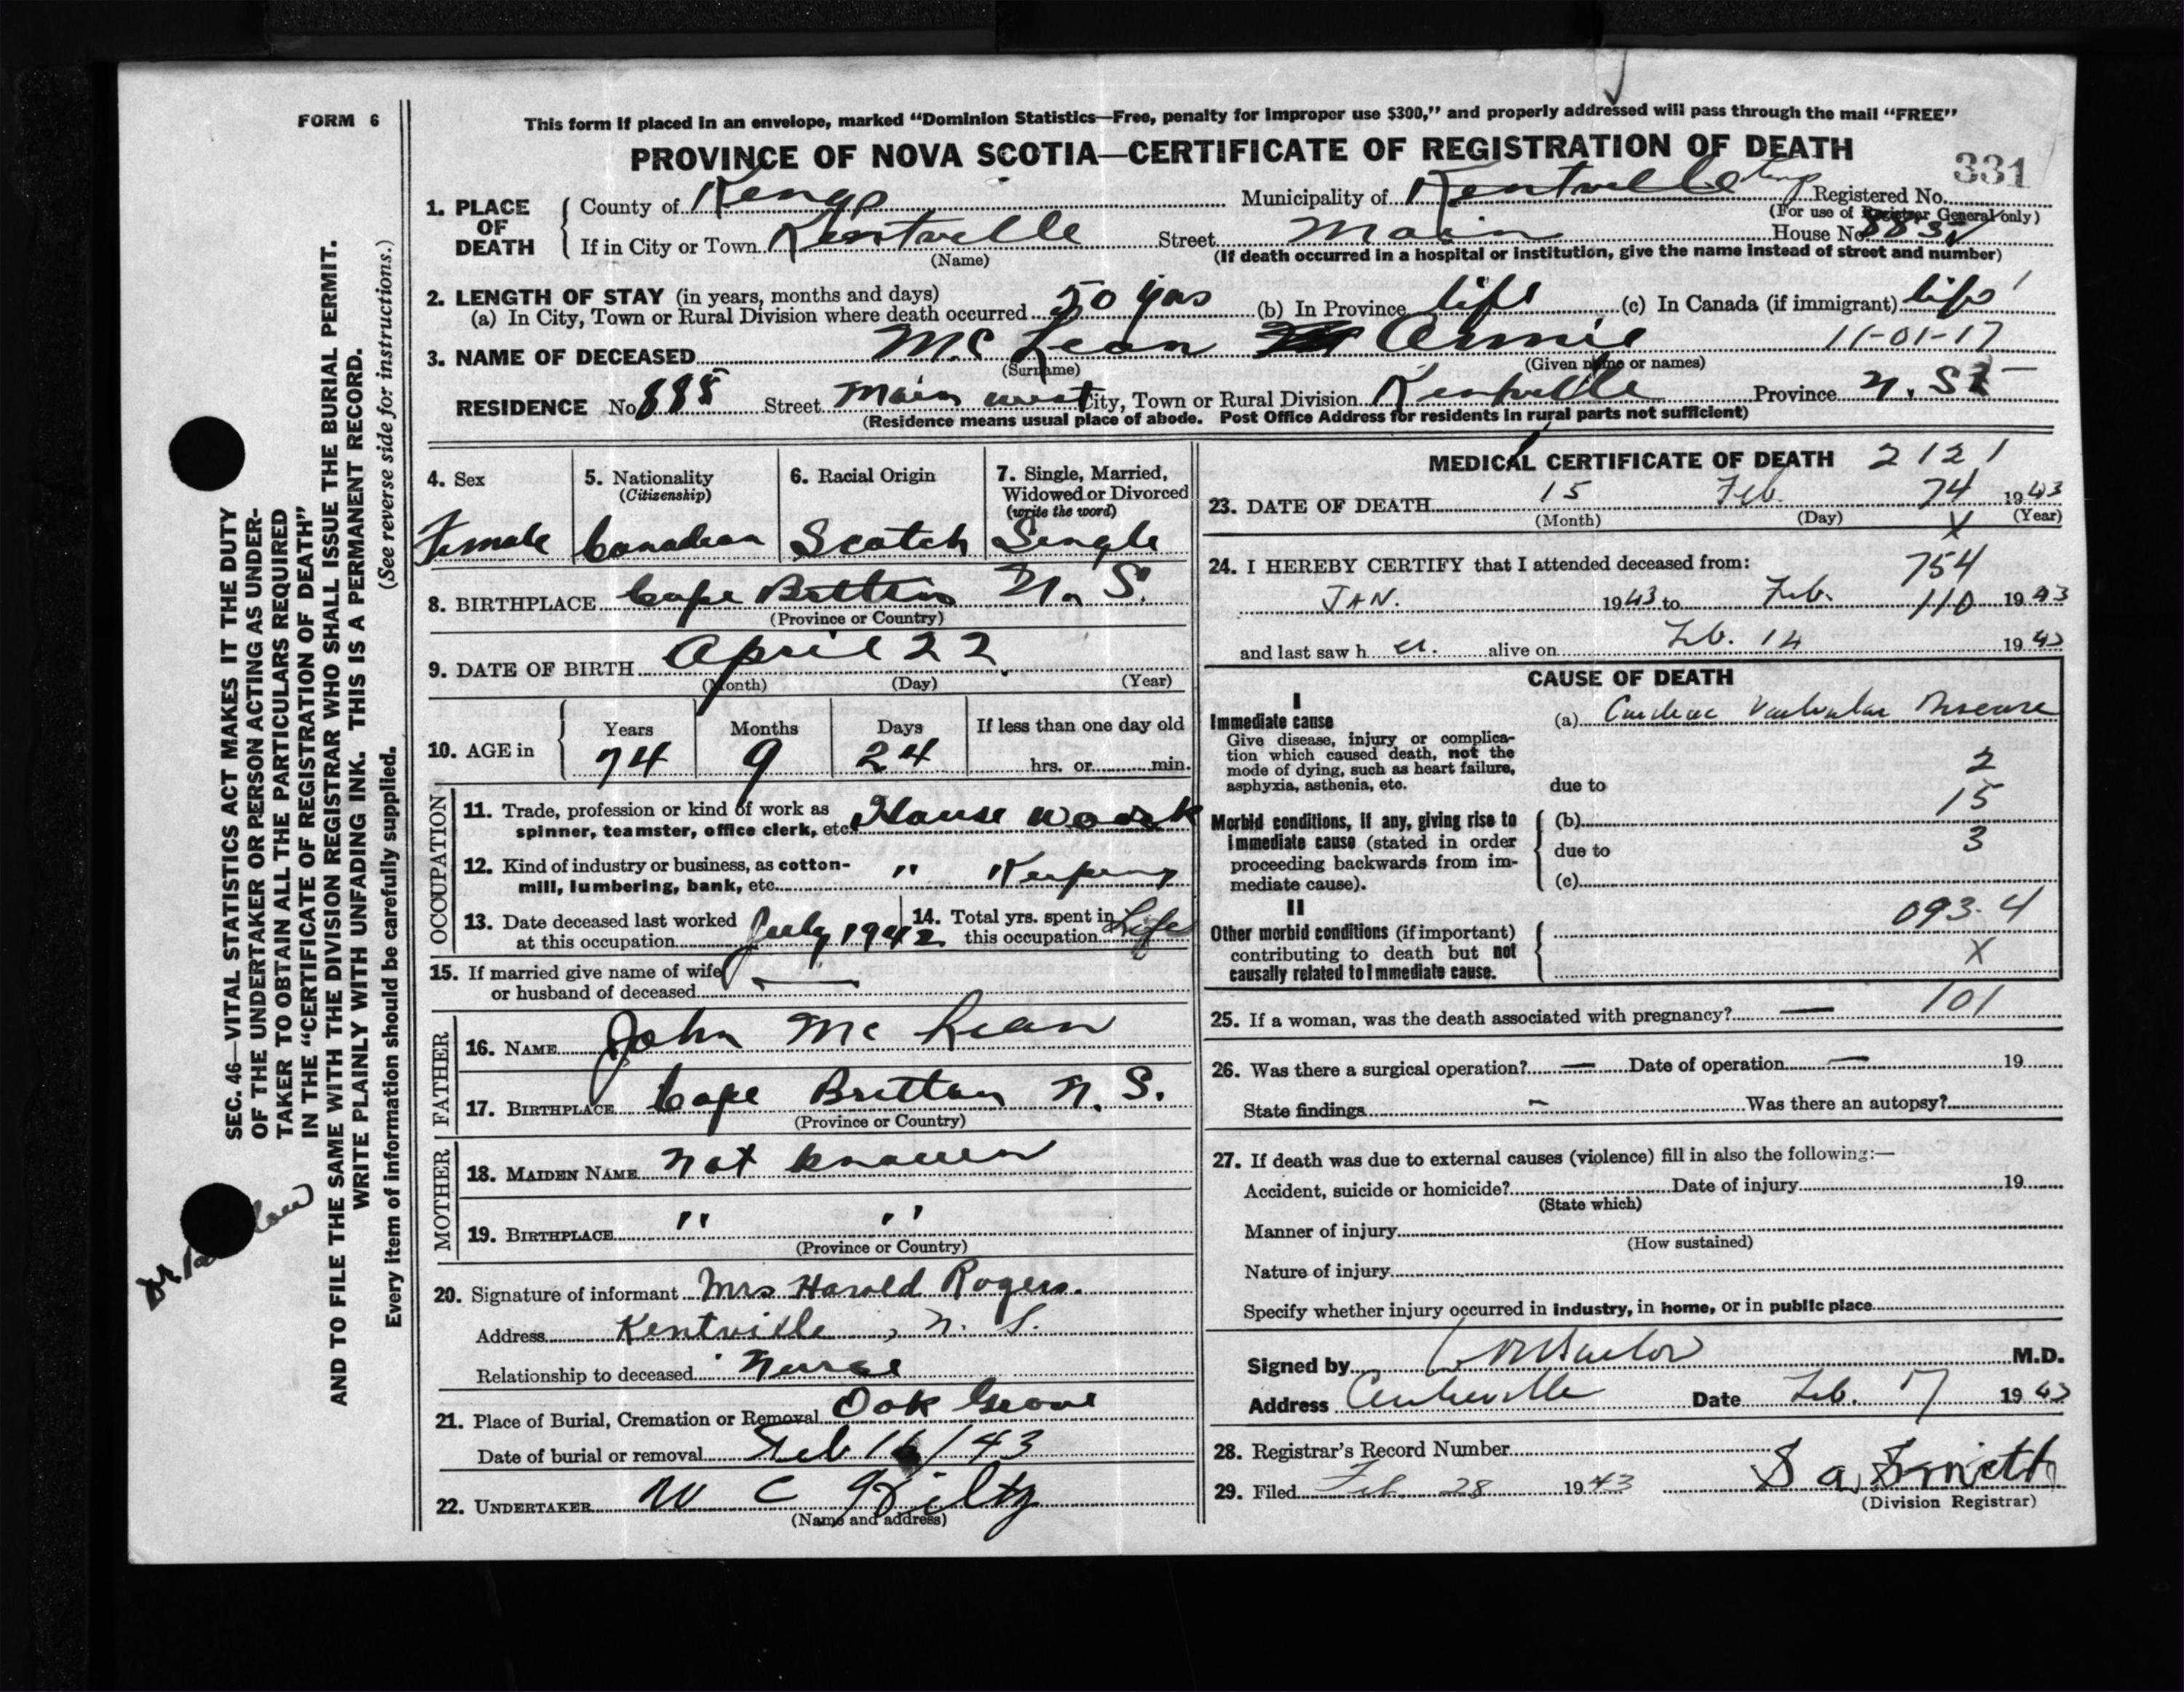 FORM 6
This form if placed in an envelope, marked "Dominion Statistics—Free, penalty for improper use $300," and properly addressed will pass through the mail "FREE"
PROVINCE OF NOVA SCOTIA—CERTIFICATE OF REGISTRATION OF DEATH
331
1. PLACE OF DEATH
County of Kings Municipality of Kentville Registered No.
(For use of Registrar General only)
If in City or Town Kentville Street Main House No. 885
(Name) (If death occurred in a hospital or institution, give the name instead of street and number)
2. LENGTH OF STAY (in years, months and days)
(a) In City, Town or Rural Division where death occurred 50 yrs (b) In Province life (c) In Canada (if immigrant) life
3. NAME OF DECEASED Mc Lean Annie 11-01-17
(Surname) (Given name or names)
RESIDENCE No. 885 Street Main west City, Town or Rural Division Kentville Province N. S.
(Residence means usual place of abode. Post Office Address for residents in rural parts not sufficient)
4. Sex 5. Nationality (Citizenship) 6. Racial Origin 7. Single, Married, Widowed or Divorced (write the word)
Female Canadian Scotch Single
8. BIRTHPLACE Cape Britton N. S.
(Province or Country)
9. DATE OF BIRTH April 22
(Month) (Day) (Year)
10. AGE in Years Months Days If less than one day old
74 9 24 hrs. or min.
OCCUPATION
11. Trade, profession or kind of work as spinner, teamster, office clerk, etc. House Work
12. Kind of industry or business, as cotton-mill, lumbering, bank, etc. " Keeping
13. Date deceased last worked at this occupation July 1942
14. Total yrs. spent in this occupation Life
15. If married give name of wife or husband of deceased —
FATHER
16. NAME John Mc Lean
17. BIRTHPLACE Cape Britton N. S.
(Province or Country)
MOTHER
18. MAIDEN NAME Not known
19. BIRTHPLACE " "
(Province or Country)
20. Signature of informant Mrs Harold Rogers.
Address Kentville, N. S.
Relationship to deceased Nurse
21. Place of Burial, Cremation or Removal Oak Grove
Date of burial or removal Feb 16/43
22. UNDERTAKER W C Hiltz
(Name and address)
MEDICAL CERTIFICATE OF DEATH 2121
23. DATE OF DEATH 15 Feb. 74 1943
(Month) (Day) X (Year)
24. I HEREBY CERTIFY that I attended deceased from: 754
JAN. 1943 to Feb. 110 1943
and last saw h er. alive on Feb. 14 1943
CAUSE OF DEATH
I
Immediate cause (a) Cardiac Valvular Disease
Give disease, injury or complication which caused death, not the mode of dying, such as heart failure, asphyxia, asthenia, etc.
2
due to
15
Morbid conditions, if any, giving rise to immediate cause (stated in order proceeding backwards from immediate cause).
(b)
due to 3
(c)
II
093.4
Other morbid conditions (if important) contributing to death but not causally related to immediate cause.
X
25. If a woman, was the death associated with pregnancy? — 101
26. Was there a surgical operation? — Date of operation — 19
State findings — Was there an autopsy?
27. If death was due to external causes (violence) fill in also the following:—
Accident, suicide or homicide? Date of injury 19
(State which)
Manner of injury
(How sustained)
Nature of injury
Specify whether injury occurred in industry, in home, or in public place
Signed by M.D.
Address Centreville Date Feb. 17 1943
28. Registrar's Record Number
29. Filed Feb. 28 1943 S a Smith
(Division Registrar)
SEC. 46—VITAL STATISTICS ACT MAKES IT THE DUTY
OF THE UNDERTAKER OR PERSON ACTING AS UNDER-
TAKER TO OBTAIN ALL THE PARTICULARS REQUIRED
IN THE "CERTIFICATE OF REGISTRATION OF DEATH"
AND TO FILE THE SAME WITH THE DIVISION REGISTRAR WHO SHALL ISSUE THE BURIAL PERMIT.
WRITE PLAINLY WITH UNFADING INK. THIS IS A PERMANENT RECORD.
(See reverse side for instructions.)
Every item of information should be carefully supplied.